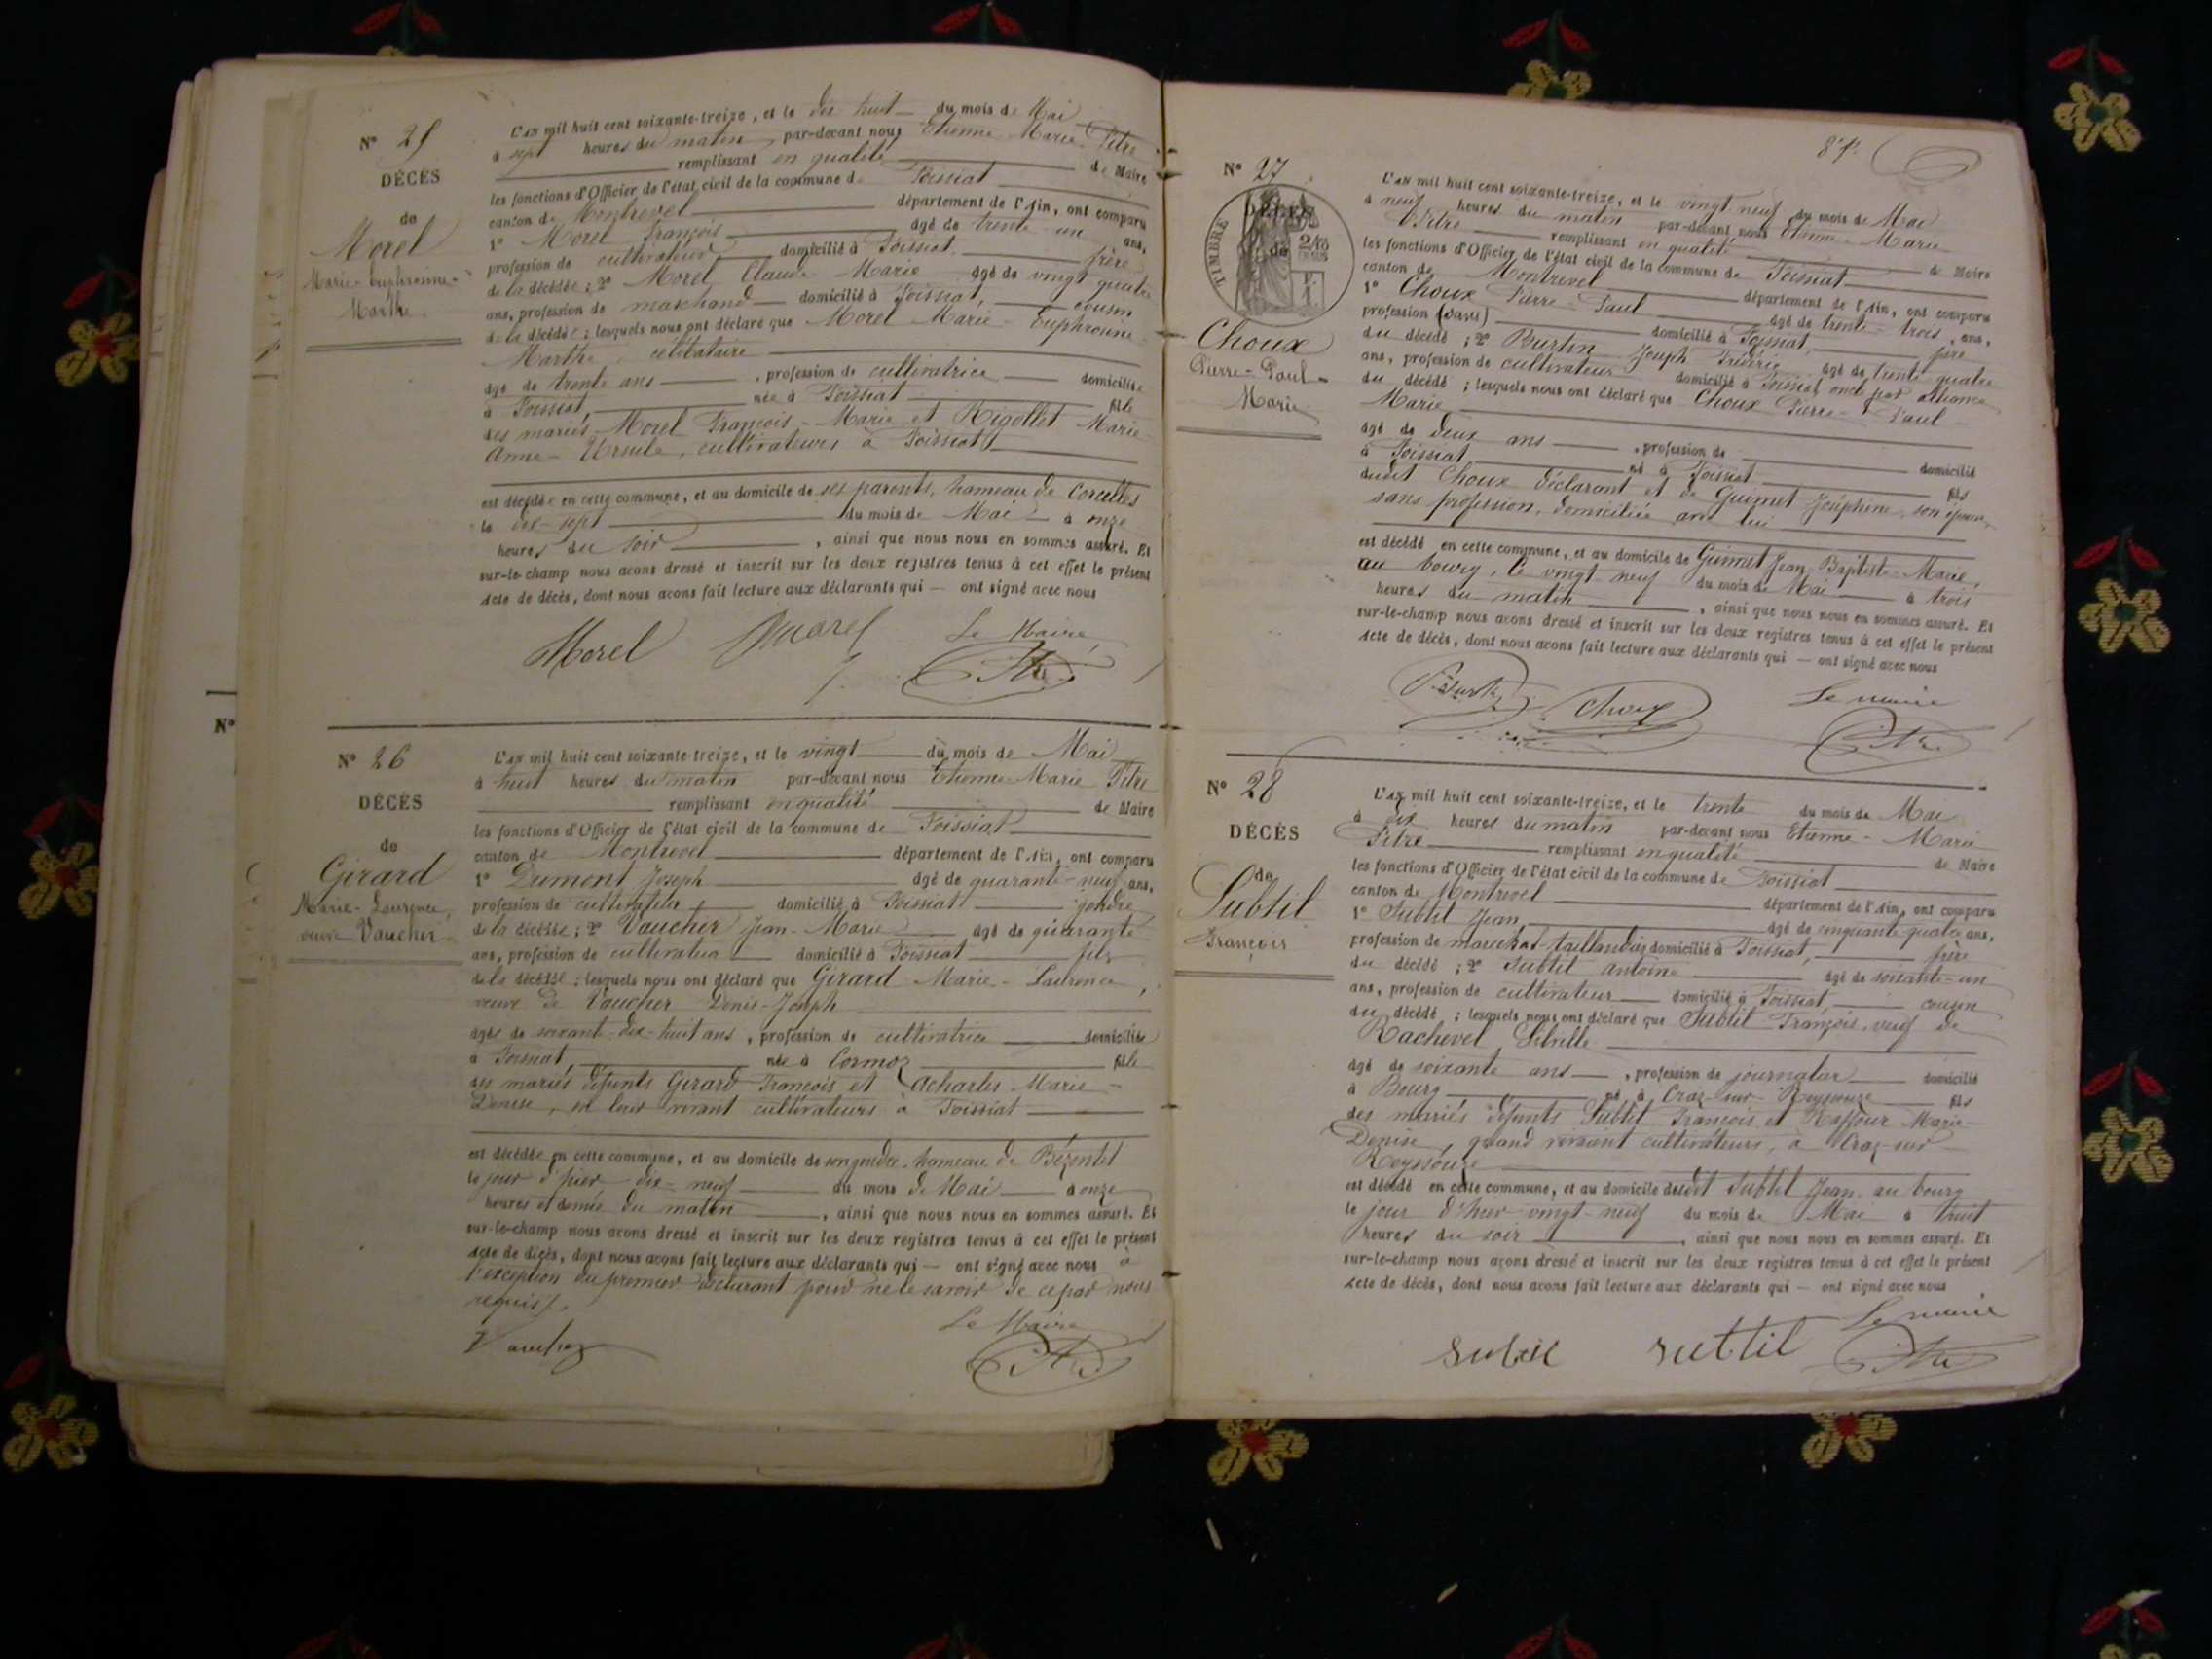 N° 25
DÉCÈS
de
Morel
Marie-Euphrosine-
Marthe
L'an mil huit cent soixante-treize, et le dix huit du mois de Mai
à sept heures du matin par-devant nous Etienne-Marie Pitre
remplissant en qualité de Maire
les fonctions d'Officier de l'état civil de la commune de Foissiat
canton de Montrevel département de l'Ain, ont comparu
1° Morel François âgé de trente-un ans,
profession de cultivateur domicilié à Foissiat, frère
de la décédée ; 2° Morel Claude-Marie âgé de vingt quatre
ans, profession de marchand domicilié à Foissiat, cousin
de la décédée ; lesquels nous ont déclaré que Morel Marie-Euphrosine-
Marthe, célibataire
âgé de trente ans, profession de cultivatrice domiciliée
à Foissiat, née à Foissiat fille
des mariés Morel François-Marie et Rigollet Marie-
Anne-Ursule, cultivateurs à Foissiat
est décédée en cette commune, et au domicile de ses parents, hameau de Corcelles
le dix-sept du mois de Mai à onze
heures du soir, ainsi que nous nous en sommes assuré. Et
sur-le-champ nous avons dressé et inscrit sur les deux registres tenus à cet effet le présent
acte de décès, dont nous avons fait lecture aux déclarants qui — ont signé avec nous
Morel Morel Le Maire
Pitre
N°
N° 26
DÉCÈS
de
Girard
Marie-Laurence,
veuve Vaucher
L'an mil huit cent soixante-treize, et le vingt du mois de Mai
à huit heures du matin par-devant nous Etienne-Marie Pitre
remplissant en qualité de Maire
les fonctions d'Officier de l'état civil de la commune de Foissiat
canton de Montrevel département de l'Ain, ont comparu
1° Dumont Joseph âgé de quarante-neuf ans,
profession de cultivateur domicilié à Foissiat gendre
de la décédée ; 2° Vaucher Jean-Marie âgé de quarante
ans, profession de cultivateur domicilié à Foissiat fils
de la décédée ; lesquels nous ont déclaré que Girard Marie-Laurence,
veuve de Vaucher Denis-Joseph
agée de soixant-dix-huit ans, profession de cultivatrice domiciliée
à Foissiat, née à Cormoz fille
des mariés défunts Girard François et Acharles Marie-
Denise, en leur vivant cultivateurs à Foissiat
est décédée en cette commune, et au domicile de son gendre, hameau de Bézentet
le jour d'hier dix-neuf du mois de Mai à onze
heures et demie du matin, ainsi que nous nous en sommes assuré. Et
sur-le-champ nous avons dressé et inscrit sur les deux registres tenus à cet effet le présent
acte de décès, dont nous avons fait lecture aux déclarants qui — ont signé avec nous à
l'exception du premier déclarant pour ne le savoir de ce par nous
requis.
Vaucher Le Maire
Pitre
8° f°.
N° 27
DÉCÈS
de
TIMBRE
Choux
Pierre-Paul-
Marie
L'an mil huit cent soixante-treize, et le vingt-neuf du mois de Mai
à neuf heures du matin par-devant nous Etienne-Marie
Pitre remplissant en qualité de Maire
les fonctions d'Officier de l'état civil de la commune de Foissiat
canton de Montrevel département de l'Ain, ont comparu
1° Choux Pierre-Paul âgé de trente-trois ans,
profession (sans) domicilié à Foissiat, père
du décédé ; 2° Burtin Joseph Frédéric âgé de trente-quatre
ans, profession de cultivateur domicilié à Foissiat, oncle par alliance
du décédé ; lesquels nous ont déclaré que Choux Pierre-Paul-
Marie
âgé de deux ans, profession de domicilié
à Foissiat né à Foissiat fils
dudit Choux déclarant et de Guimet Joséphine, son épouse,
sans profession, domiciliée avec lui
est décédé en cette commune, et au domicile de Guimet Jean-Baptiste-Marie,
au bourg, le vingt-neuf du mois de Mai à trois
heures du matin, ainsi que nous nous en sommes assuré. Et
sur-le-champ nous avons dressé et inscrit sur les deux registres tenus à cet effet le présent
acte de décès, dont nous avons fait lecture aux déclarants qui — ont signé avec nous
Burtin Choux Le maire
Pitre
N° 28
DÉCÈS
de
Subtil
François
L'an mil huit cent soixante-treize, et le trente du mois de Mai
à dix heures du matin par-devant nous Etienne-Marie
Pitre remplissant en qualité de Maire
les fonctions d'Officier de l'état civil de la commune de Foissiat
canton de Montrevel département de l'Ain, ont comparu
1° Subtil Jean, âgé de cinquante-quatre ans,
profession de maréchal-taillandier domicilié à Foissiat, frère
du décédé ; 2° Subtil Antoine âgé de soixante-un
ans, profession de cultivateur domicilié à Foissiat, cousin
du décédé ; lesquels nous ont déclaré que Subtil François, veuf de
Rachevel
âgé de soixante ans, profession de journalier domicilié
à Bourg né à Cras-sur-Reyssouze fils
des mariés défunts Subtil François et Raffour Marie-
Denise, quand vivaient cultivateurs, à Cras-sur-
Reyssouze
est décédé en cette commune, et au domicile dudit Subtil Jean, au bourg
le jour d'hier vingt-neuf du mois de Mai à huit
heures du soir, ainsi que nous nous en sommes assuré. Et
sur-le-champ nous avons dressé et inscrit sur les deux registres tenus à cet effet le présent
acte de décès, dont nous avons fait lecture aux déclarants qui — ont signé avec nous
Subtil Subtil Le maire
Pitre